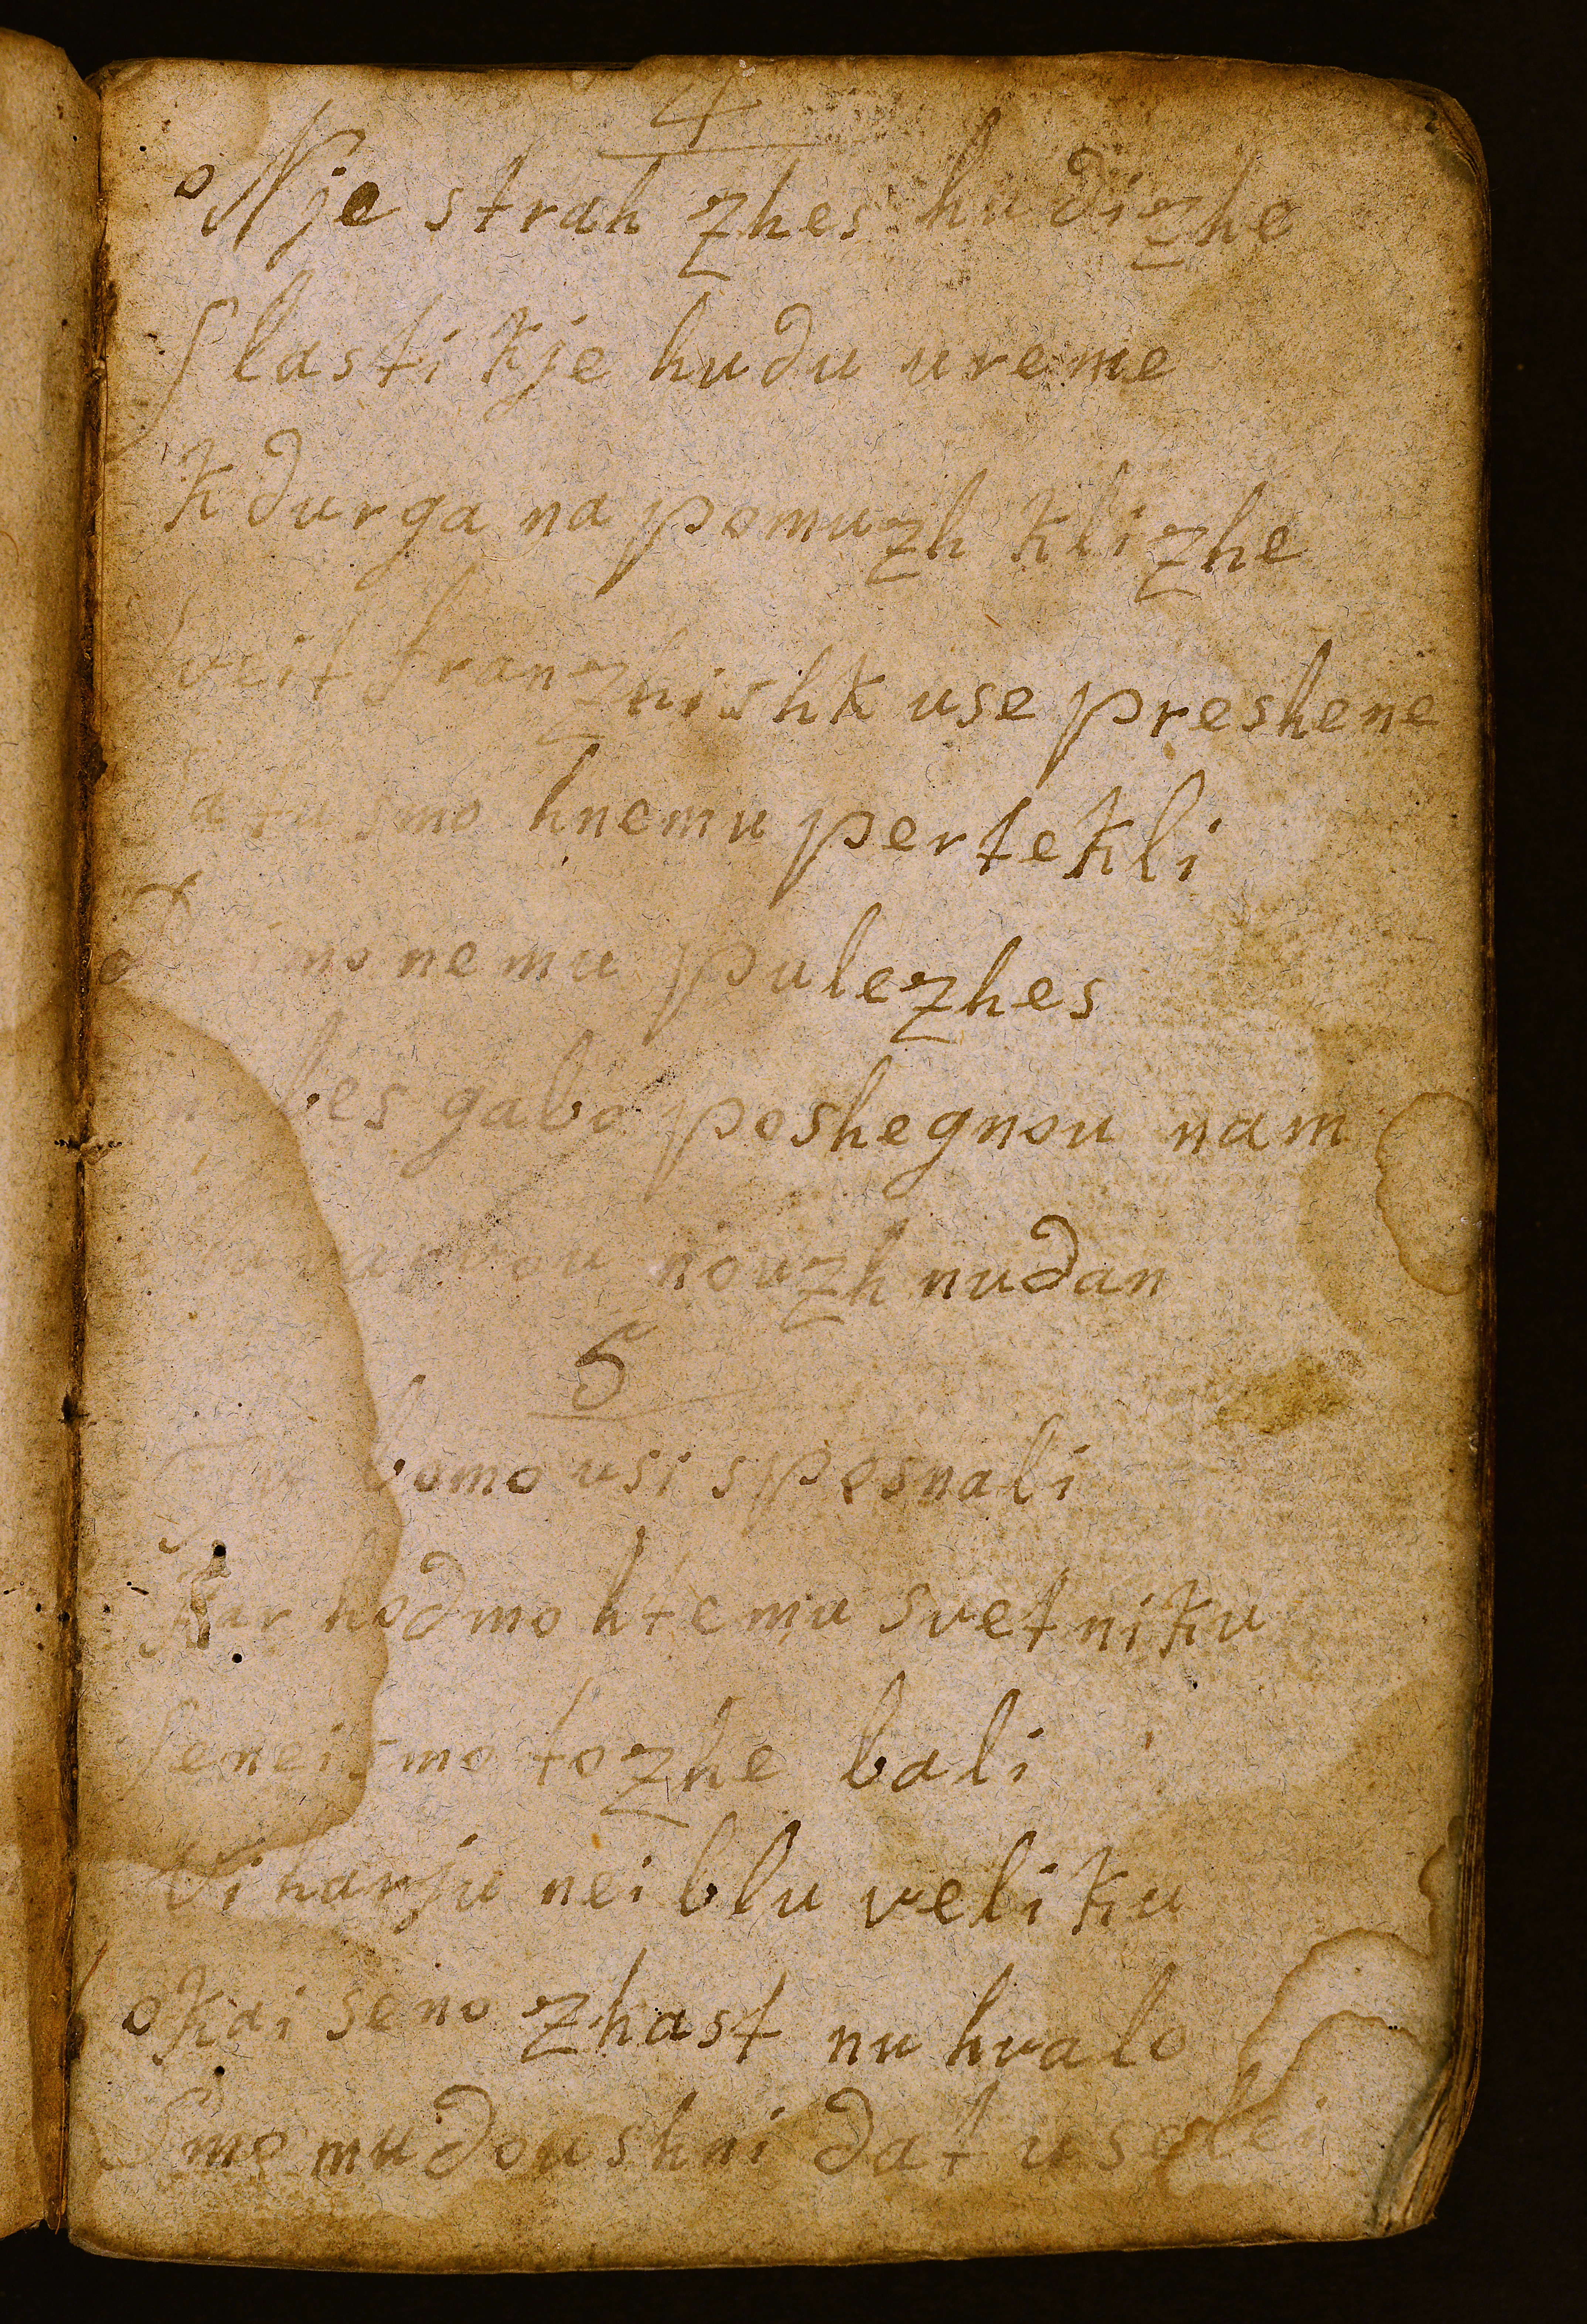 4
Nje strah zhes hudizhe
Slasti kje hudu ureme
kdurga na pomuzh klizhe
vrit franzhishk use preshene
a tu smo hnemu pertekli
nemu pulezhes
bes gabo poshegnou nam
nouzh nudan
5
bomo usi sposnali
Kar hodmo htemu svetniku
Seneismo tozhe bali
Viharju nei blu veliku
okai seno zhast nu hvalo
Smo mu doushni dat uselei